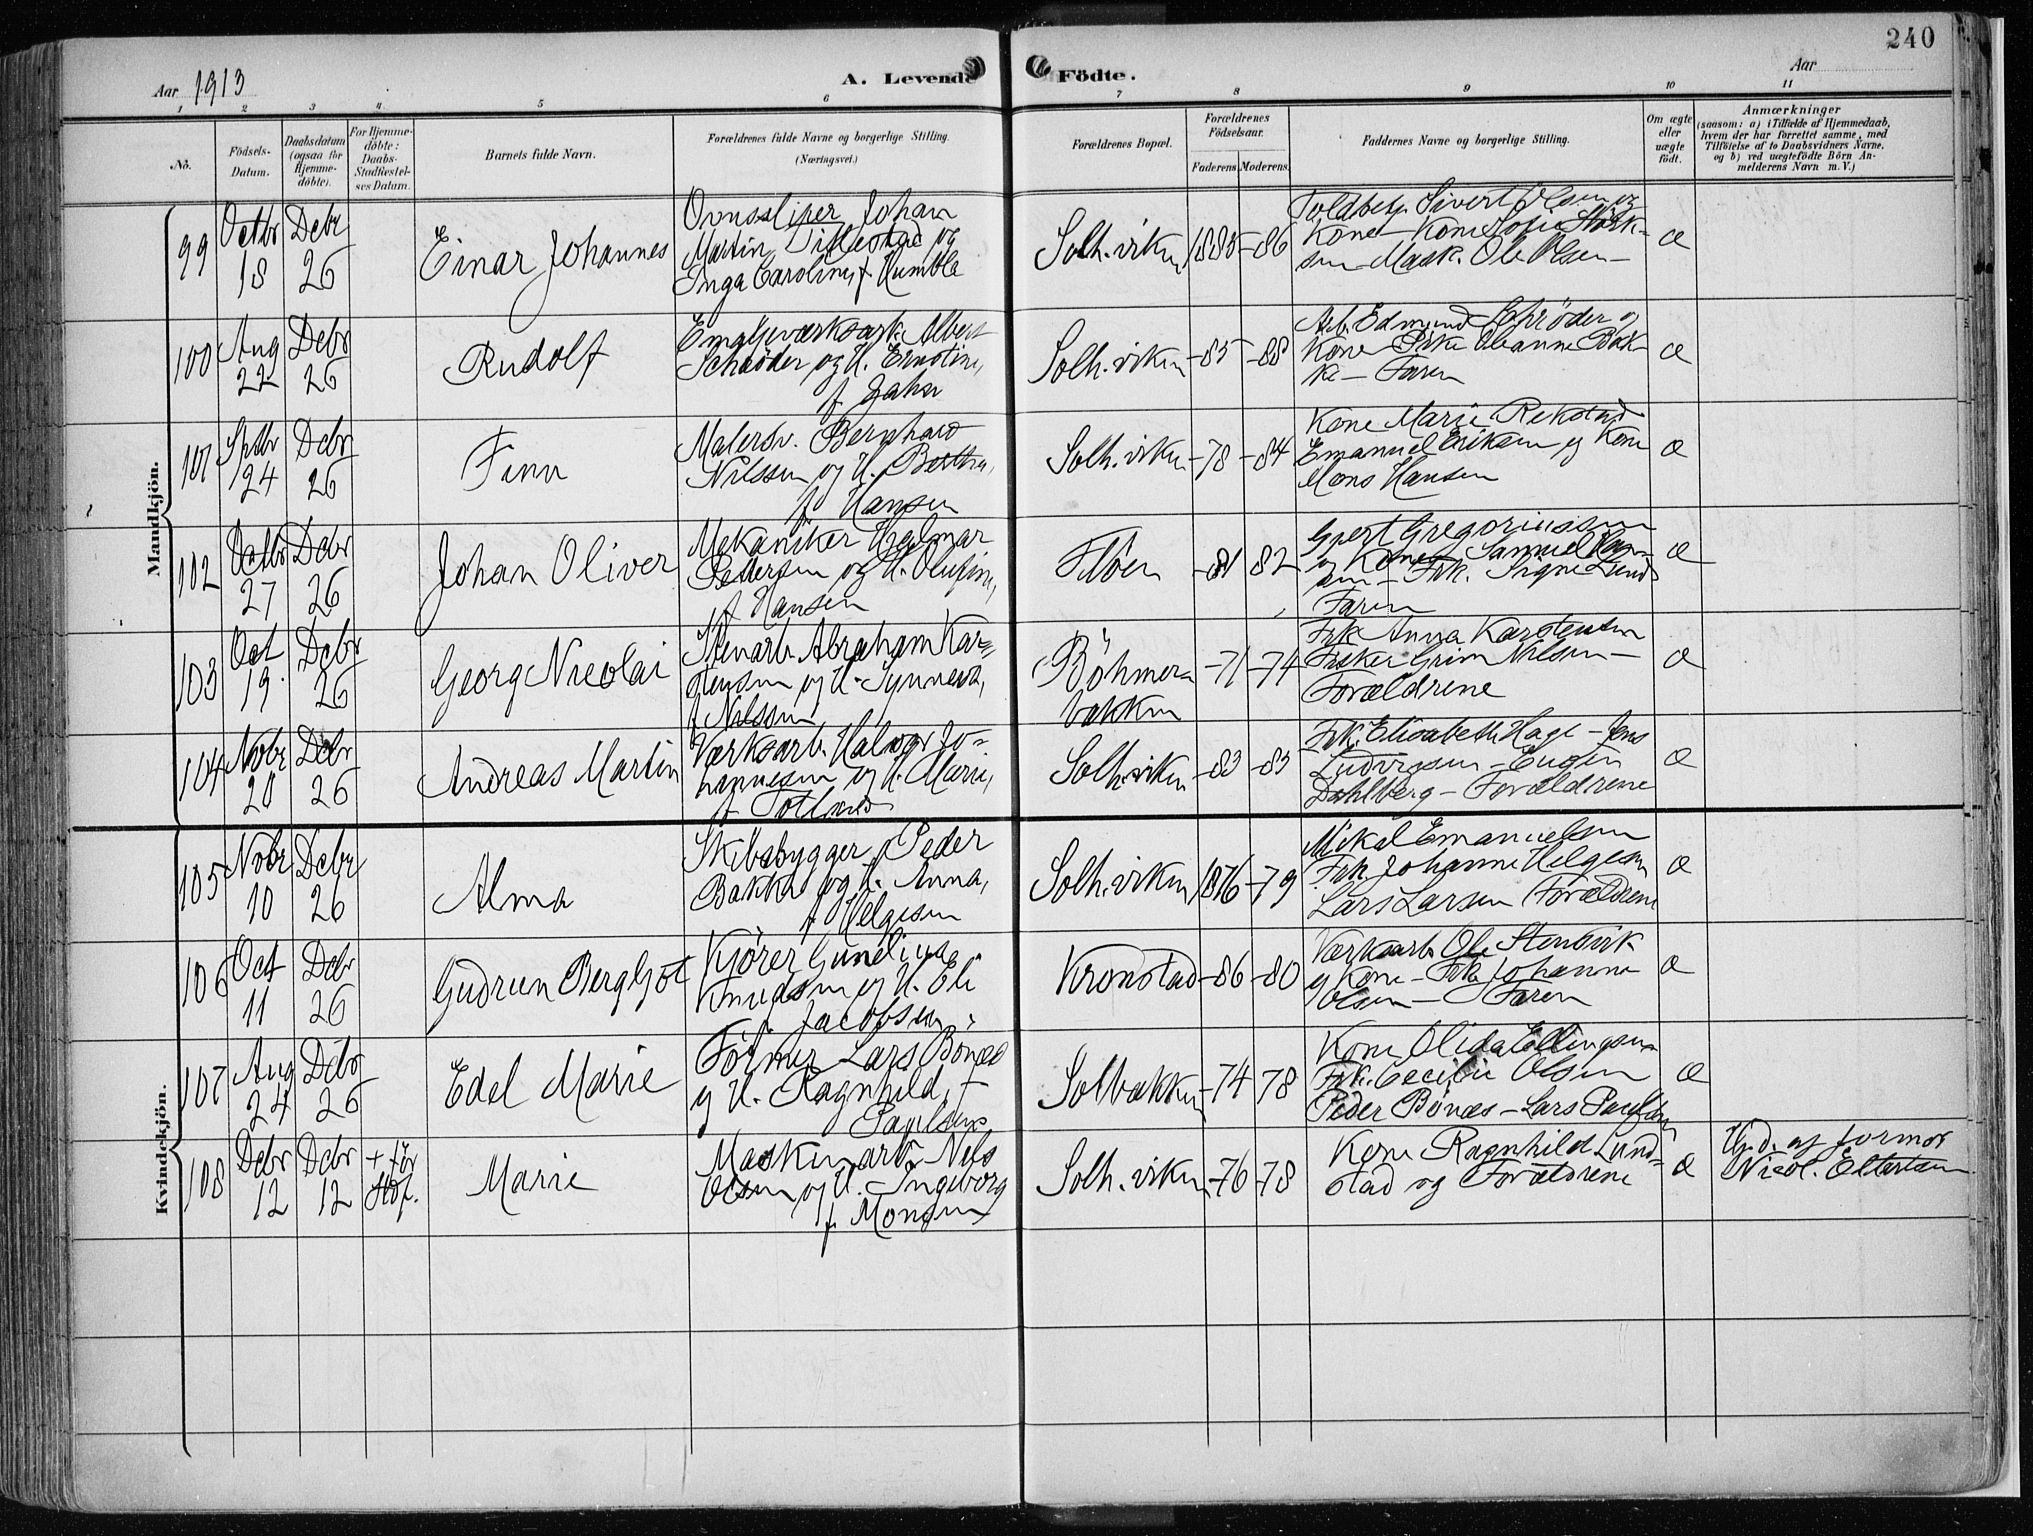 240
Aar 1913
A. Levende Födte.
Aar
1 2 3 4 5 6 7 8 9 10 11
No.
Födsels-
Datum.
Daabsdatum
(ogsaa for
Hjemme-
døbte).
For Hjemme-
døbte:
Daabs-
Stadfæstel-
ses Datum.
Barnets fulde Navn.
Forældrenes fulde Navne og borgerlige Stilling.
(Næringsvei.)
Forældrenes Bopæl.
Forældrenes
Födselsaar.
Faderens. Moderens.
Faddernes Navne og borgerlige Stilling.
Om ægte
eller
uægte
født.
Anmærkninger
(saasom: a) i Tilfælde af Hjemmedaab,
hvem der har forrettet samme, med
Tilföielse af to Daabsvidners Navne,
og b) ved uægtefödte Börn An-
melderens Navn m. V.)
Mandkjön.
99
Octbr
18
Debr
26
Einar Johannes
Ovnssliper Johan
Martin og
Inga Caroline, f. Humble
Solh.viken
1885
-86
Toldbetj. Sivert Olsen og
Kone – Kone Sofie
Mask. Ole Olsen –
æ
100
Aug
22
Debr
26
Rudolf
Emaljeværksarb. Albert
Schrøder og H. Ernstine,
f. Jahn
Solh.viken
-85
-88
Arb. Edmund Schrøder og
Kone – Frk. Oleanne
Faren
æ
101
Sptbr
24
Debr
26
Finn
Malersv. Bernhard
Nilssen og H. Bertha,
f. Hansen
Solh.viken
-78
-84
Kone Marie Rekstad
Emanuel Eriksen og Kone
Mons Hansen
æ
102
Octbr
27
Debr
26
Johan Oliver
Mekaniker Hjalmar
Pettersen og H. Olufine,
f. Hansen
Flöen
-81
82
Gjert Gregoriussen
og Kone Samuel
Frk. Signe Lund
Faren
æ
103
Oct
19.
Debr
26
Georg Nicolai
Stenarb. Abraham Kar-
stensen og H. Synneva,
f. Nilssen
Böhmer-
bakken
-71
-74
Frk. Anna Karstensen
Fisker Grim Nilsen –
Forældrene
æ
104
Novbr
20
Debr
26
Andreas Martin
Værksarb. Halvor Jo-
hannesen og H. Marie,
f. Totland
Solh.viken
-83
-85
Frk. Elisabeth Hage – Jens
Ludvigsen – Eugen
Dahlberg – Forældrene
æ
Kvindekjön.
105
Novbr
10
Debr
26
Alma
Skibsbygger Peder
Bakke og H. Anna,
f. Helgesen
Solh.viken
1876
-79
Mikal Emanuelsen
Frk. Johanne Helgesen
Lars Larsen Forældrene
æ
106
Oct
11
Debr
26
Gudrun Bergljot
Kjörer Gundlius
Knudsen og H. Eli
Jacobsen
Kronstad
-86
-80
Værksarb. Ole Stenvik
og Kone – Frk. Johanne
Olsen – Faren
æ
107
Aug
24
Debr
26
Edel Marie
Former Lars Bönæs
og H. Ragnhild, f.
Paulsen
Solbakken
-74
78
Kone Olida Ellingsen
Frk. Cecilie Olsen
Peder Bönæs – Lars Paulsen
æ
108
Debr
12
Debr
12
+ før
Stdf.
Marie
Maskinarb. Nils
Olsen og H. Ingeborg
f. Monsen
Solh.viken
-76
-78
Kone Ragnhild Lund-
stad og Forældrene
æ
af Jormor
Nicol. Eltertsen